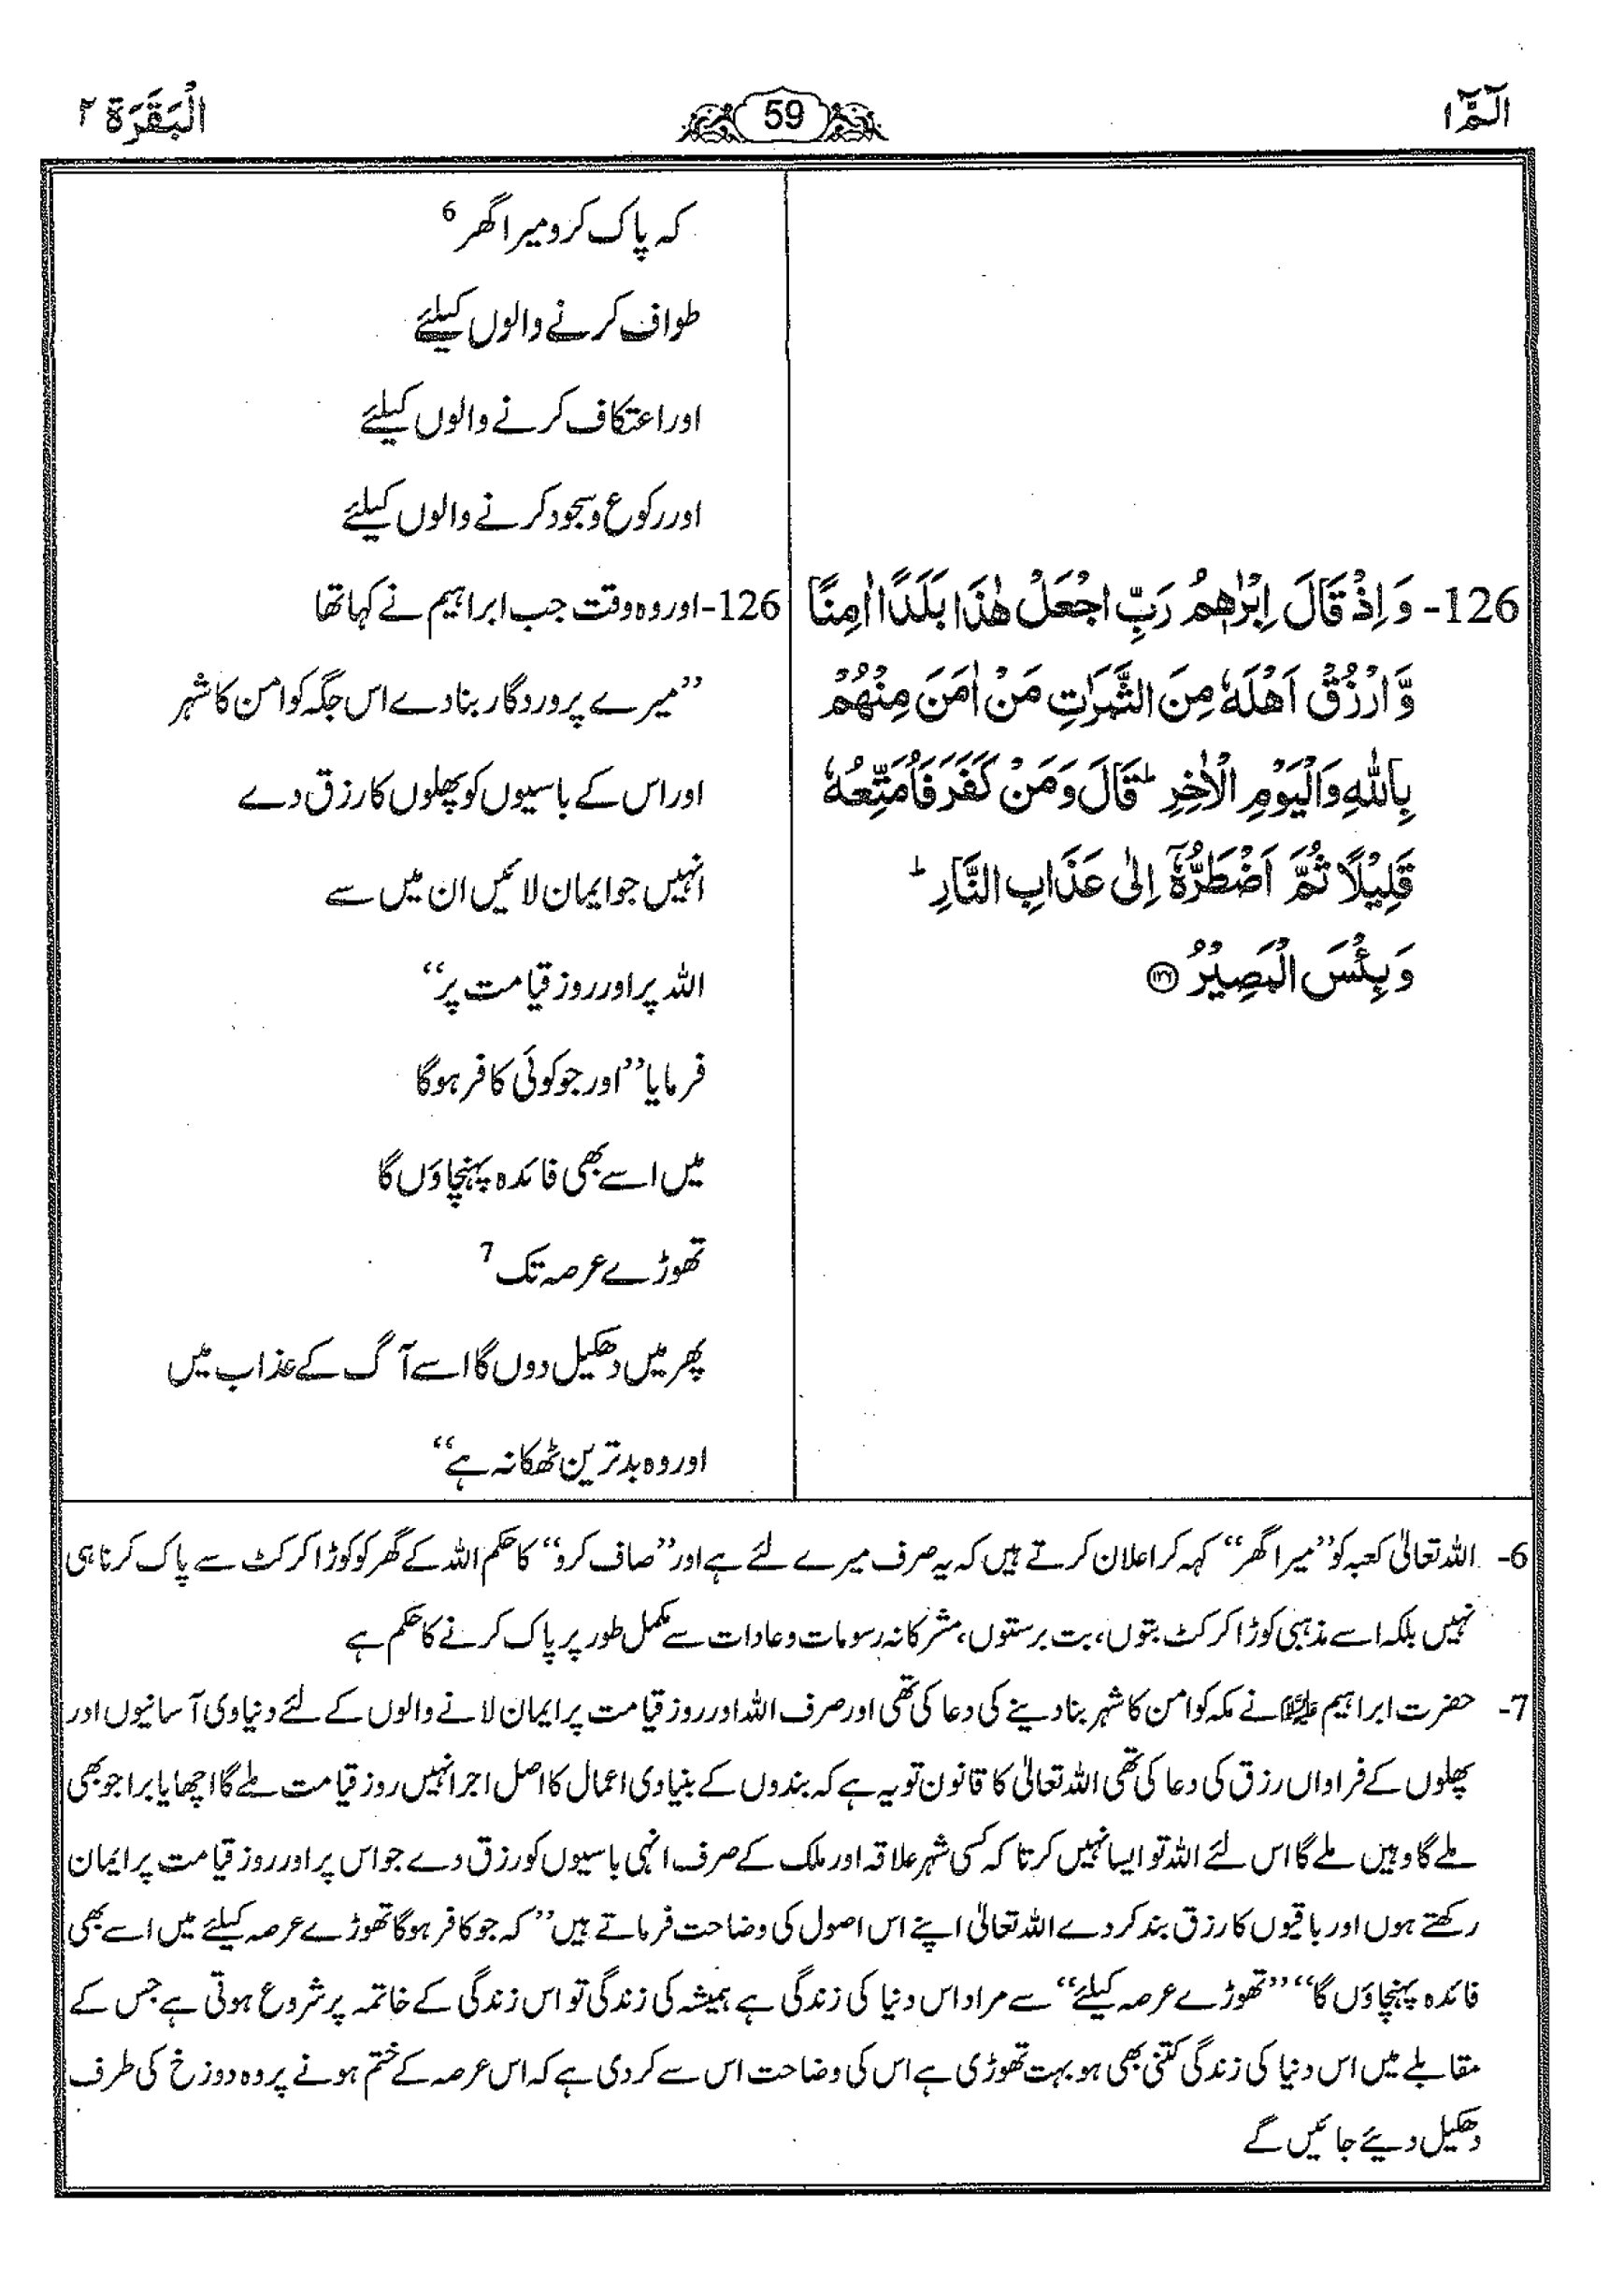 الٓمّٓ ١
59
الْبَقَرَة ٢
کہ پاک کرو میرا گھر 6
طواف کرنے والوں کیلئے
اور اعتکاف کرنے والوں کیلئے
اور رکوع و سجود کرنے والوں کیلئے
126- وَ اِذْ قَالَ اِبْرٰهٖمُ رَبِّ اجْعَلْ هٰذَا بَلَدًا اٰمِنًا
وَّ ارْزُقْ اَهْلَهٗ مِنَ الثَّمَرٰتِ مَنْ اٰمَنَ مِنْهُمْ
بِاللّٰهِ وَالْيَوْمِ الْاٰخِرِ ؕ قَالَ وَمَنْ كَفَرَ فَاُمَتِّعُهٗ
قَلِيْلًا ثُمَّ اَضْطَرُّهٗۤ اِلٰى عَذَابِ النَّارِ ؕ
وَ بِئْسَ الْمَصِيْرُ ﴿١٢٦﴾
126- اور وہ وقت جب ابراہیم نے کہا تھا
’’میرے پروردگار بنا دے اس جگہ کو امن کا شہر
اور اس کے باسیوں کو پھلوں کا رزق دے
انہیں جو ایمان لائیں ان میں سے
اللہ پر اور روز قیامت پر‘‘
فرمایا ’’اور جو کوئی کافر ہوگا
میں اسے بھی فائدہ پہنچاؤں گا
تھوڑے عرصہ تک 7
پھر میں دھکیل دوں گا اسے آگ کے عذاب میں
اور وہ بدترین ٹھکانہ ہے‘‘
6- اللہ تعالیٰ کعبہ کو ’’میرا گھر‘‘ کہہ کر اعلان کرتے ہیں کہ یہ صرف میرے لئے ہے اور ’’صاف کرو‘‘ کا حکم اللہ کے گھر کو کوڑا کرکٹ سے پاک کرنا ہی
نہیں بلکہ اسے مذہبی کوڑا کرکٹ بتوں، بت پرستوں، مشرکانہ رسومات و عادات سے مکمل طور پر پاک کرنے کا حکم ہے
7- حضرت ابراہیم علیہ السلام نے مکہ کو امن کا شہر بنا دینے کی دعا کی تھی اور صرف اللہ اور روز قیامت پر ایمان لانے والوں کے لئے دنیاوی آسانیوں اور
پھلوں کے فراواں رزق کی دعا کی تھی اللہ تعالیٰ کا قانون تو یہ ہے کہ بندوں کے بنیادی اعمال کا اصل اجر انہیں روز قیامت ملے گا اچھا یا برا جو بھی
ملے گا وہیں ملے گا اس لئے اللہ تو ایسا نہیں کرتا کہ کسی شہر علاقہ اور ملک کے صرف انہی باسیوں کو رزق دے جو اس پر اور روز قیامت پر ایمان
رکھتے ہوں اور باقیوں کا رزق بند کر دے اللہ تعالیٰ اپنے اس اصول کی وضاحت فرماتے ہیں ’’کہ جو کافر ہوگا تھوڑے عرصہ کیلئے میں اسے بھی
فائدہ پہنچاؤں گا‘‘ ’’تھوڑے عرصہ کیلئے‘‘ سے مراد اس دنیا کی زندگی ہے ہمیشہ کی زندگی تو اس زندگی کے خاتمہ پر شروع ہوتی ہے جس کے
مقابلے میں اس دنیا کی زندگی کتنی بھی ہو بہت تھوڑی ہے اس کی وضاحت اس سے کر دی ہے کہ اس عرصہ کے ختم ہونے پر وہ دوزخ کی طرف
دھکیل دیئے جائیں گے